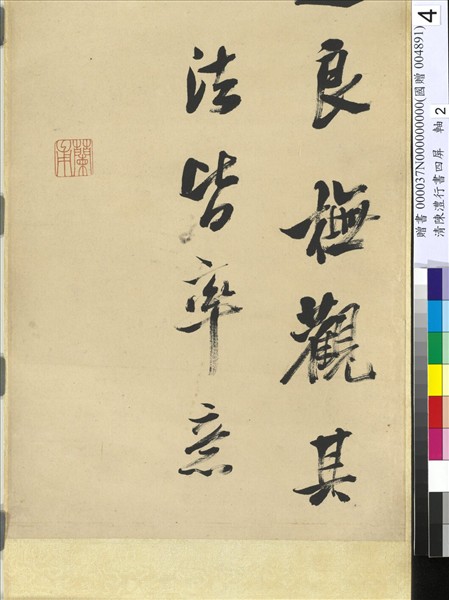 良橅觀其
法皆率意
蘭甫
贈書 000037N000000000(國贈 004891)
清陳澧行書四屏 軸 2
4